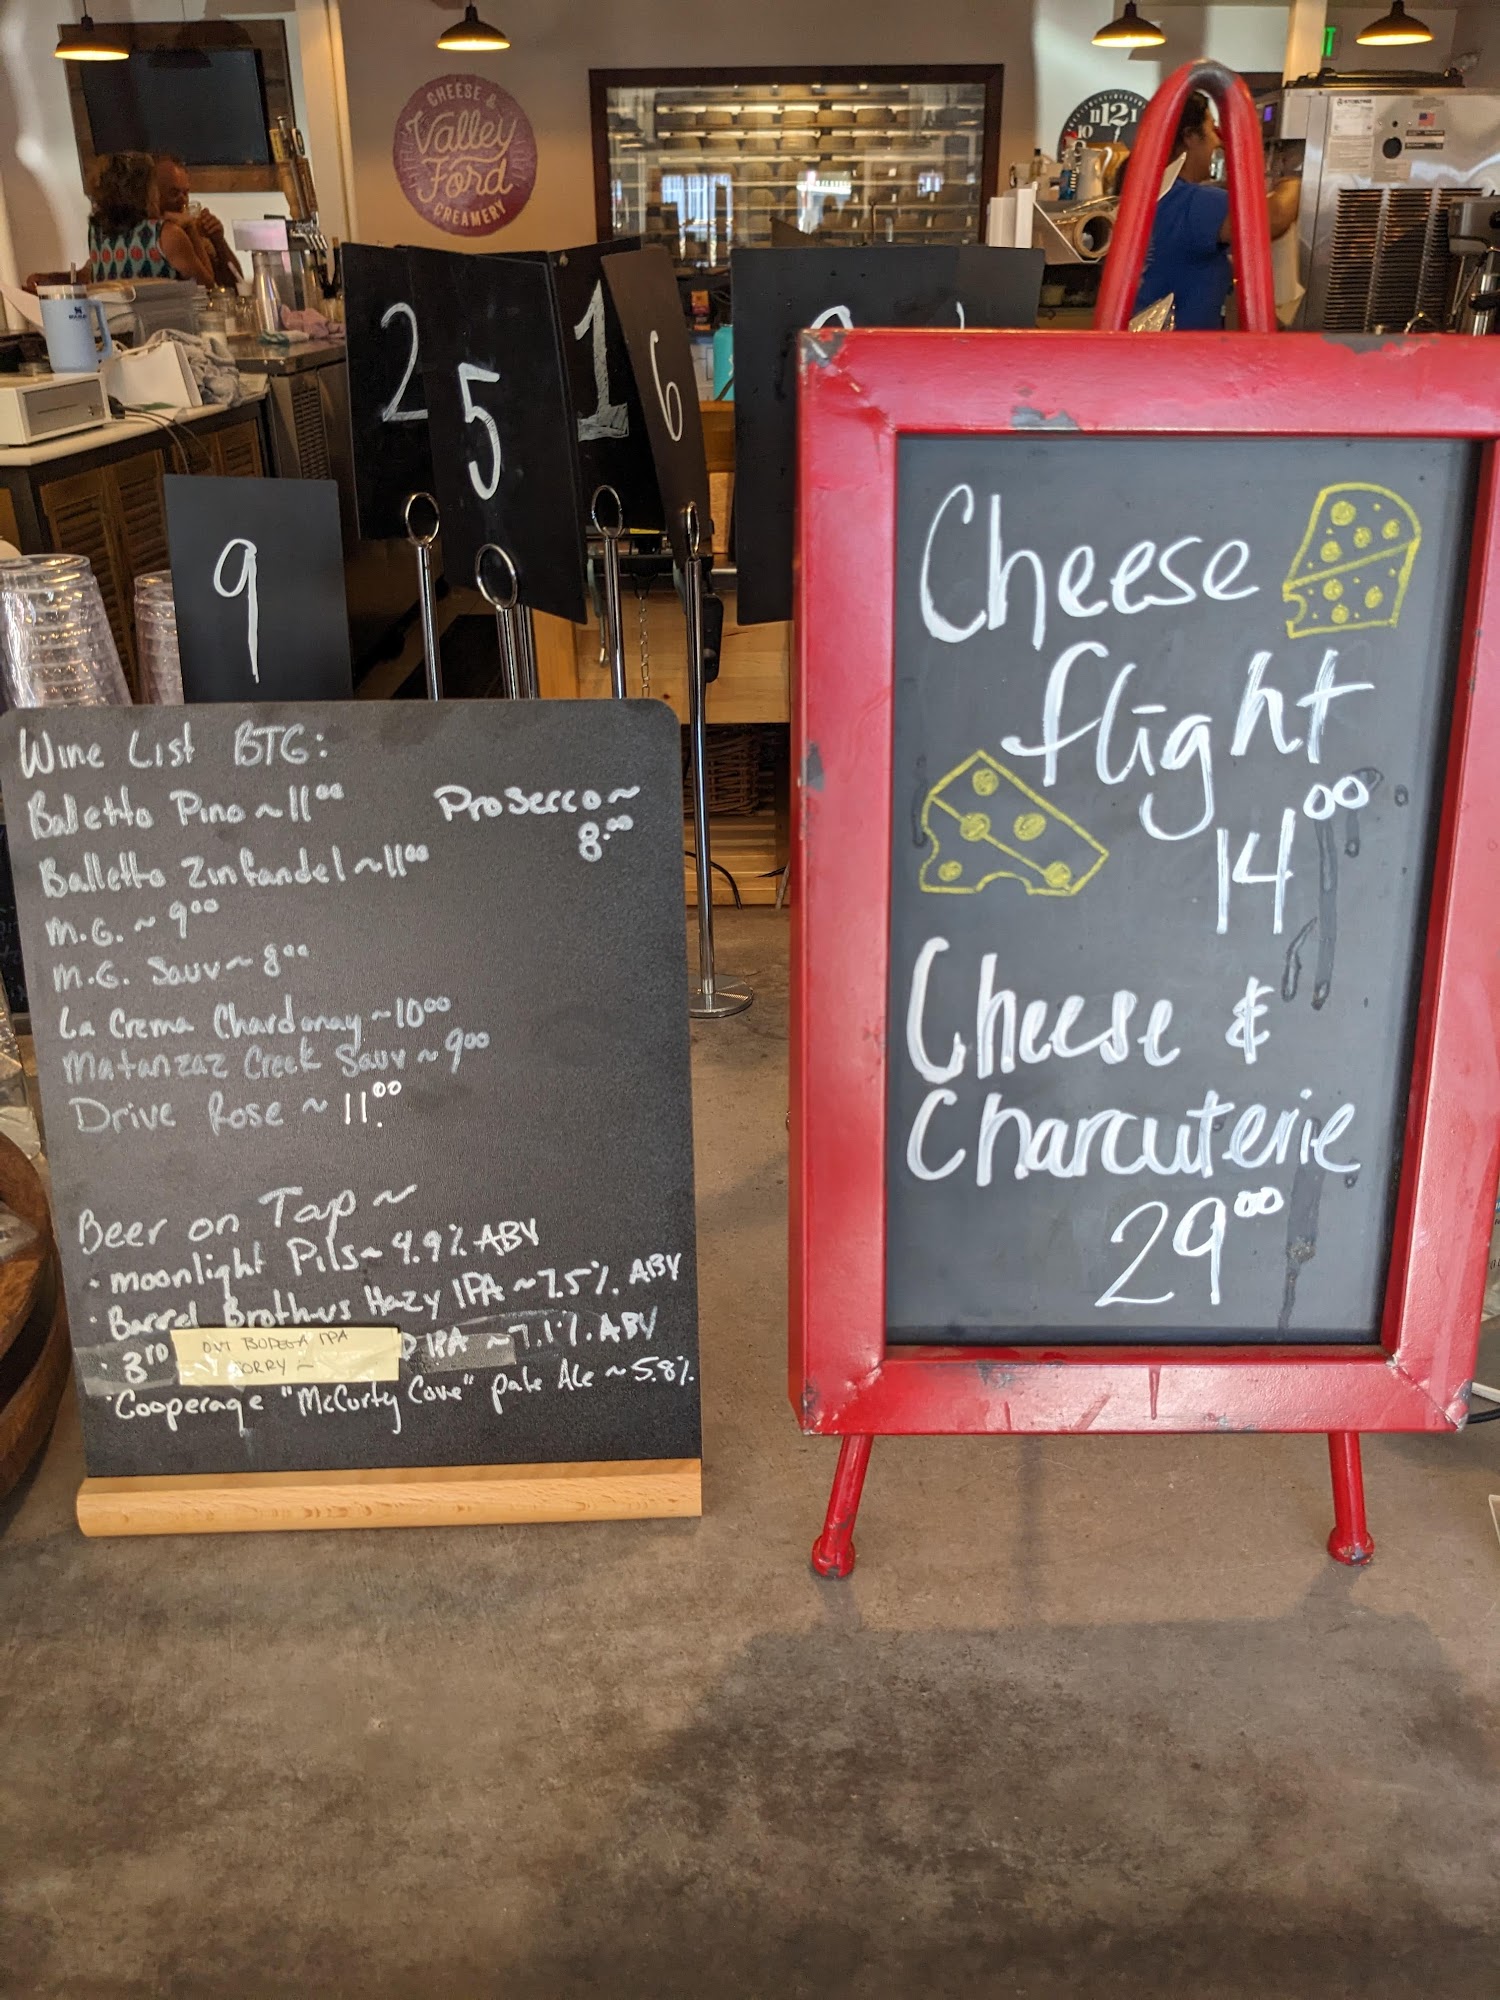 CHEESE &
Valley
Ford
CREAMERY
2
5
1
6
9
11 12 1
10
Wine List BTG:
Balletto Pino ~ 11⁰⁰
Prosecco ~
8.⁰⁰
Balletto Zinfandel ~ 11⁰⁰
M.G. ~ 9⁰⁰
M.G. Sauv ~ 8⁰⁰
La Crema Chardonay ~ 10⁰⁰
Matanzaz Creek Sauv ~ 9⁰⁰
Drive Rose ~ 11.⁰⁰
Beer on Tap ~
· Moonlight Pils ~ 4.9% ABV
· Barrel Brothers Hazy IPA ~ 7.5% ABV
· 3RD IPA ~ 7.1% ABV
OUT BODEGA IPA
SORRY ~
· Cooperage "McCurty Cove" pale Ale ~ 5.8%
Cheese
flight
14⁰⁰
Cheese &
Charcuterie
29⁰⁰